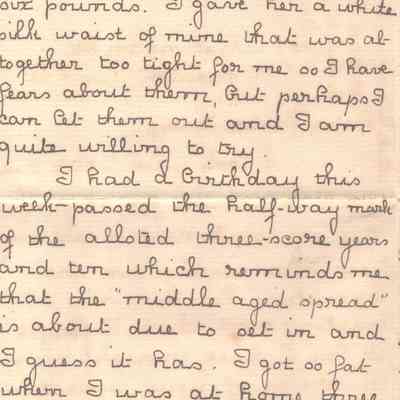 six pounds. I gave her a white
silk waist of mine that was al-
together too tight for me so I have
fears about them, but perhaps I
can let them out and I am
quite willing to try.
I had a birthday this
week-passed the half-way mark
of the alloted three-score years
and ten which reminds me
that the "middle aged spread"
is about due to set in and
I guess it has. I got so fat
when I was at home three